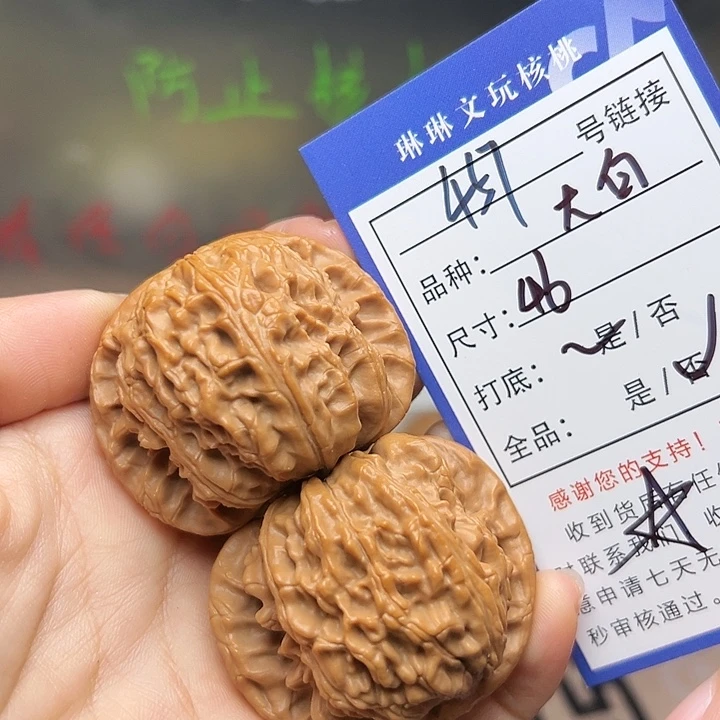 防止
琳琳文玩核桃
451 号链接
品种: 大白
尺寸: 46
打底: 是/否
全品: 是/否
感谢您的支持!
收到货后有任
时联系我们 收
意申请七天无
秒审核通过。